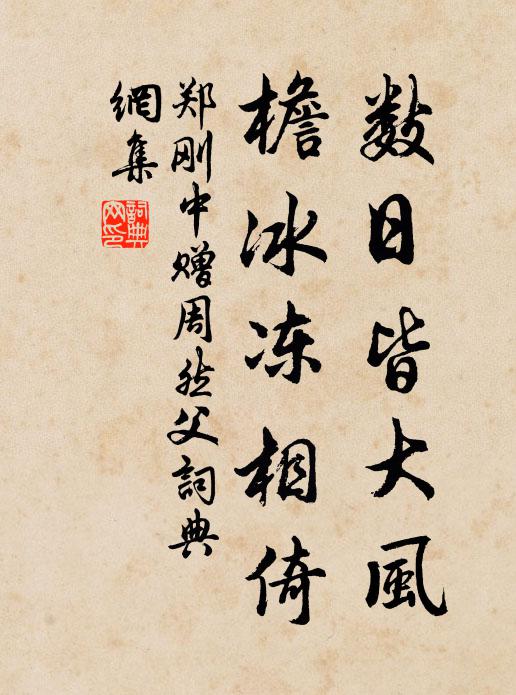 数日皆大風
檐冰冻相倚
郑刚中赠周然父詞典
網集
詞典網印